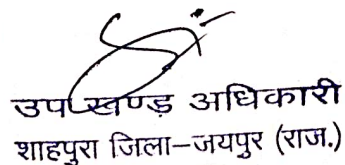 उपखण्ड़ अधिकारी
शाहपुरा जिला–जयपुर (राज.)